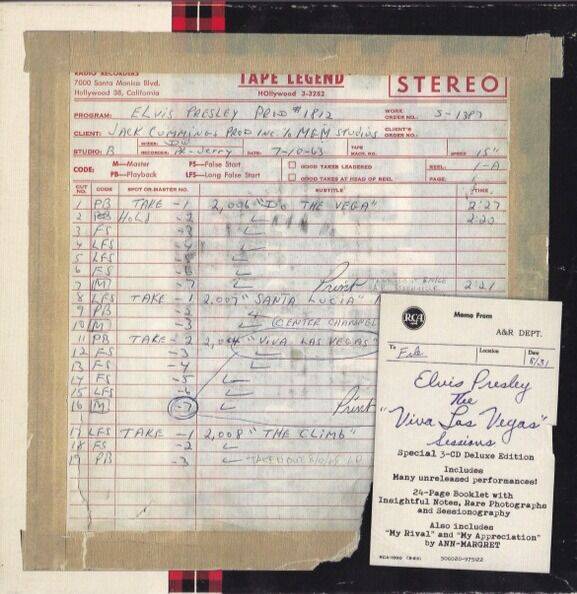 RADIO RECORDERS
7000 Santa Monica Blvd.
Hollywood 38, California
TAPE LEGEND
HOllywood 3-3282
STEREO
PROGRAM: ELVIS PRESLEY PROD # 1812
WORK ORDER NO. S-1387
CLIENT: JACK CUMMINGS PROD INC. % M.G.M STUDIOS
CLIENT'S ORDER NO.
STUDIO: B
MIXER: DW
RECORDER: Jerry
DATE: 7-10-63
TAPE MACH. NO.
SPEED 15"
CODE: M—Master FS—False Start
PB—Playback LFS—Long False Start
GOOD TAKES LEADERED
GOOD TAKES AT HEAD OF REEL
REEL: 1-A
PAGE:
CUT NO. CODE SPOT OR MASTER NO. SUBTITLE TIME
1 PB TAKE -1 2,006 "DO THE VEGA" 2:27
2 PB HOLD -2 ✓ 2:20
3 FS -3 ✓
4 LFS -4 ✓
5 LFS -5 ✓
6 FS -6 ✓
7 M -7 ✓ Print 2:21
8 LFS TAKE -1 2,007 "SANTA LUCIA"
9 PB -2 ✓
10 M -3 ✓ CENTER CHANNEL
11 PB TAKE -2 2,004 "VIVA LAS VEGAS"
12 FS -3 ✓
13 FS -4 ✓
14 FS -5 ✓
15 LFS -6 ✓
16 M -7 ✓ Print
17 LFS TAKE -1 2,008 "THE CLIMB"
18 FS -2 ✓
19 PB -3 ✓
RCA
Memo From
A&R DEPT.
To File
Location
Date 5/31
Elvis Presley
The
"Viva Las Vegas"
Sessions
Special 3-CD Deluxe Edition
Includes
Many unreleased performances!
24-Page Booklet with
Insightful Notes, Rare Photographs
and Sessionography
Also includes
"My Rival" and "My Appreciation"
by ANN-MARGRET
506020-975122